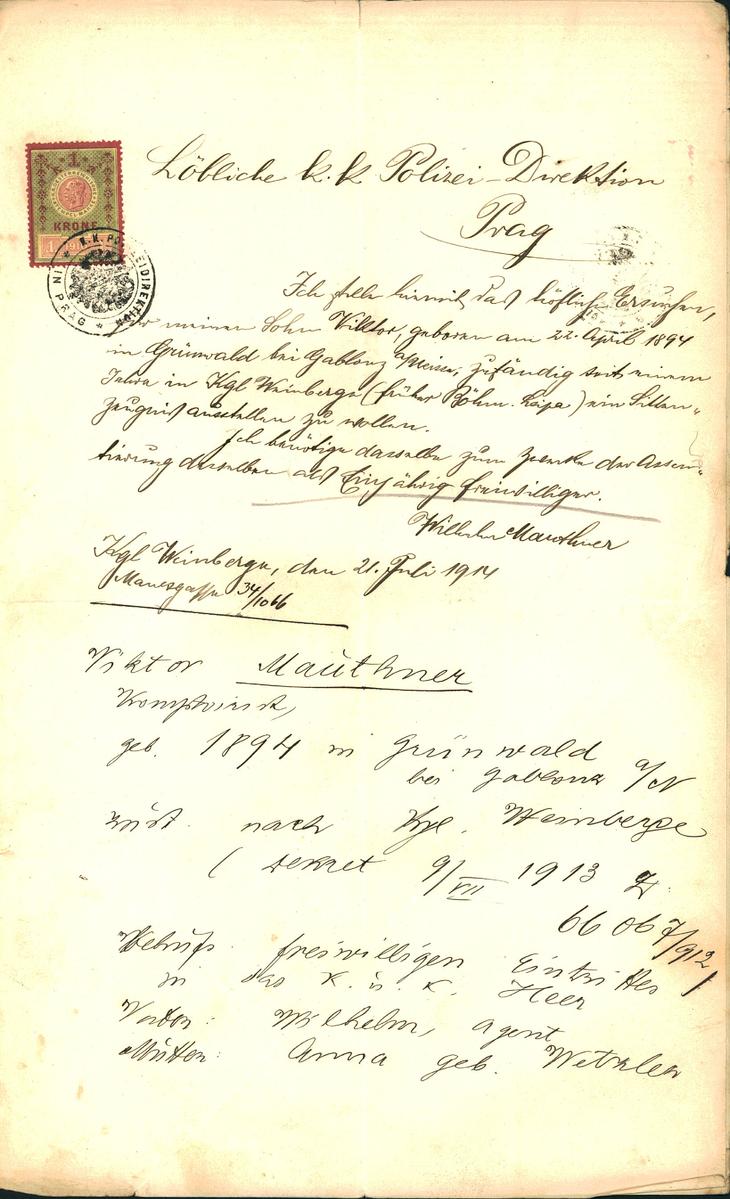 1
KRONE
1 191
K.K. POLIZEIDIREKTION
IN PRAG
Löbliche k.k Polizei-Direktion
Prag
Ich stelle hiemit das höfliche Ersuchen,
meinen Sohn Viktor, geboren am 22. April 1894
in Grünwald bei Gablonz Neisse, zuständig seit einem
Jahre in Kgl Weinberge (früher Böhm. Leipa) ein Sitten-
zeugnis ausstellen zu wollen.
Ich benötige dasselbe zum Zwecke der Assen-
tierung desselben als Einjährig freiwilliger.
Wilhelm Mauthner
Kgl Weinberge, den 21. Juli 1914
Manesgasse 34/1066
Viktor Mauthner
Komptoirist,
geb. 1894 in Grünwald
bei Gablonz a/N
zust. nach Kgl. Weinberge
(Dekret 9/VII 1913 Z.
66 067/912)
Behufs freiwilligen Eintrittes
in das k. u. k. Heer
Vater: Wilhelm, Agent
Mutter: Anna geb. Wetzler